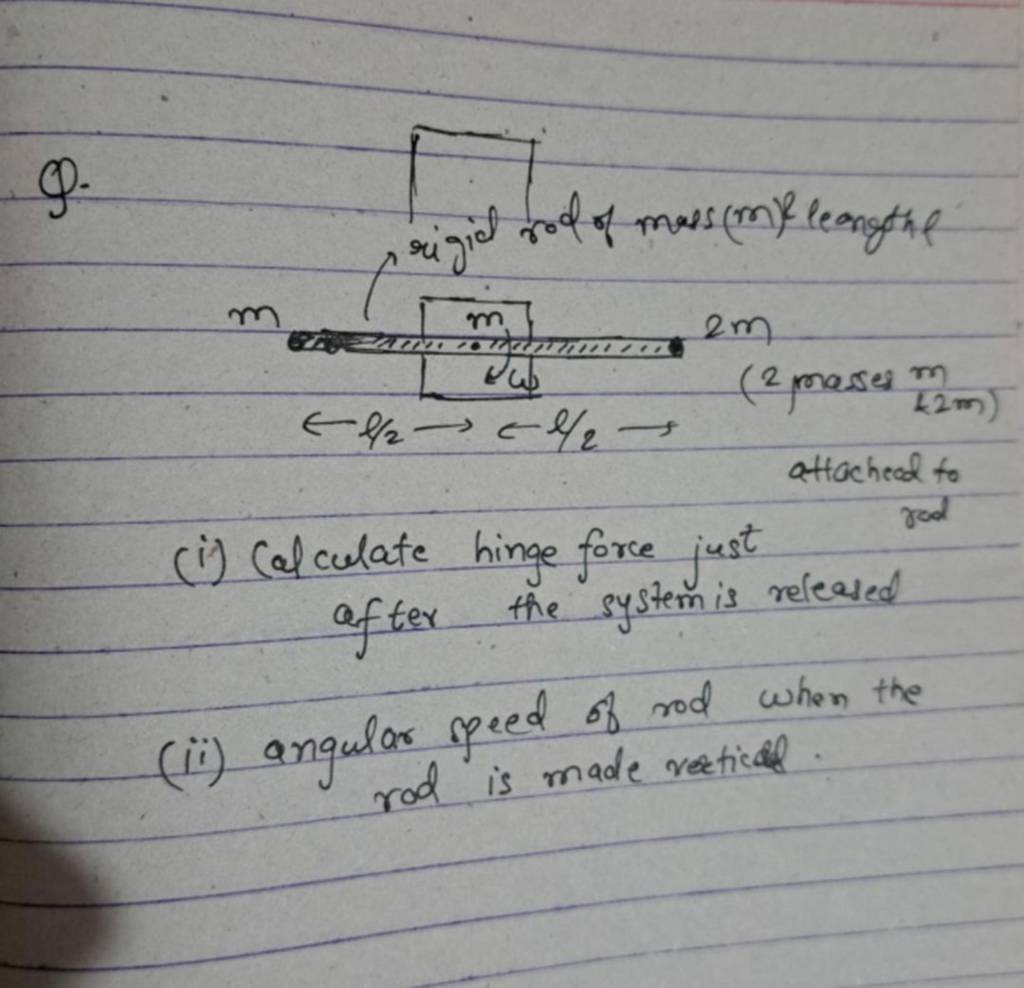 Q.
rigid rod of mass (m) & leangth l
m
m
2m
ω
(2 masses m
& 2m)
← l/2 → ← l/2 →
attachead to
rod
(i) Calculate hinge force just
after the system is released
(ii) angular speed of rod when the
rod is made vertical.